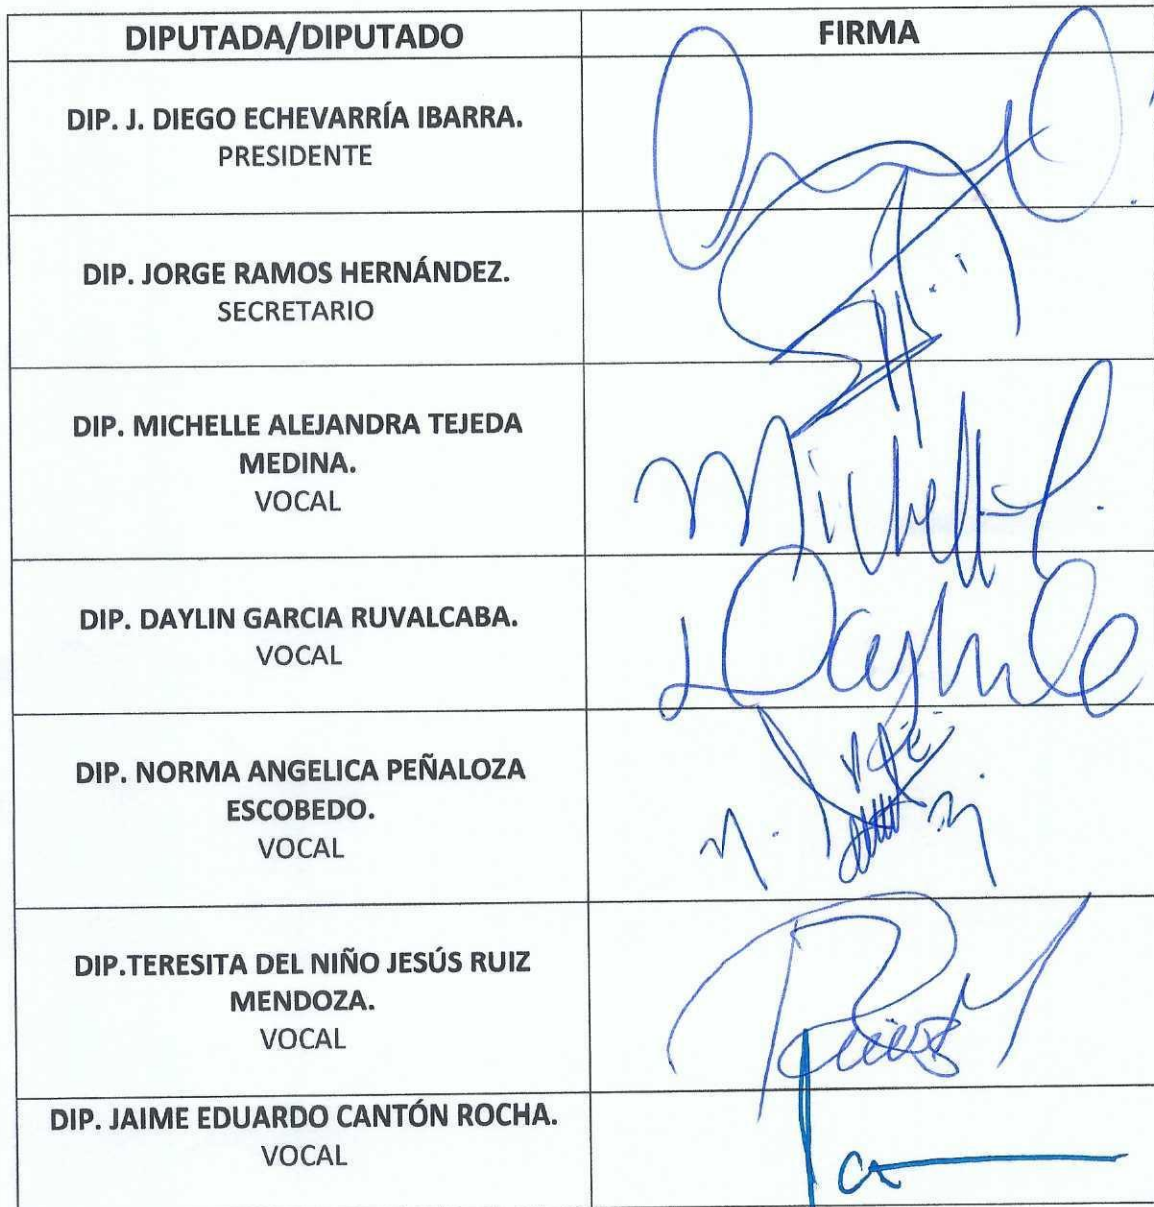 DIPUTADA/DIPUTADO FIRMA
DIP. J. DIEGO ECHEVARRÍA IBARRA.
PRESIDENTE
DIP. JORGE RAMOS HERNÁNDEZ.
SECRETARIO
DIP. MICHELLE ALEJANDRA TEJEDA
MEDINA.
VOCAL
DIP. DAYLIN GARCIA RUVALCABA.
VOCAL
DIP. NORMA ANGELICA PEÑALOZA
ESCOBEDO.
VOCAL
DIP.TERESITA DEL NIÑO JESÚS RUIZ
MENDOZA.
VOCAL
DIP. JAIME EDUARDO CANTÓN ROCHA.
VOCAL